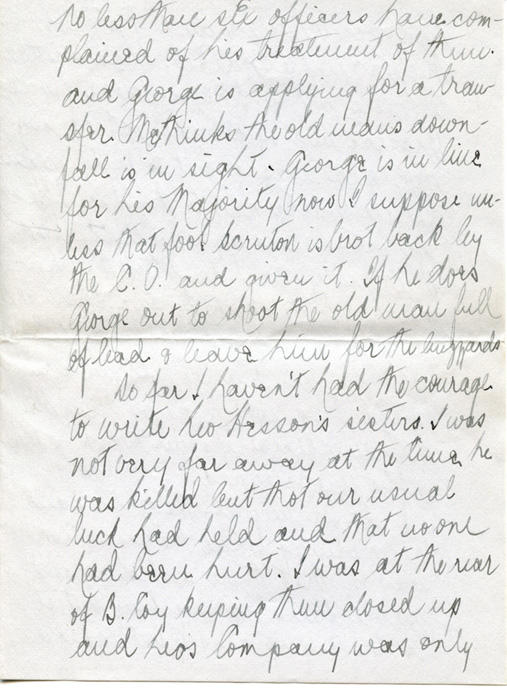 No less than six officers have com-
plained of his treatment of them.
and George is applying for a tran-
sfer. Methinks the old mans down-
fall is in sight. George is in line
for his Majority now I suppose un-
less that fool Scruton is brot back by
the C.O. and given it. If he does
George out to shoot the old man full
of lead & leave him for the buzzards
So far I haven't had the courage
to write Leo Hesson's sisters. I was
not very far away at the time he
was killed but thot our usual
luck had held and that no one
had been hurt. I was at the rear
of B. Coy keeping them closed up
and Leo's Company was only